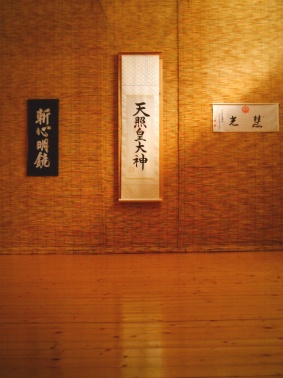 慧光
天照皇大神
斬心明鏡